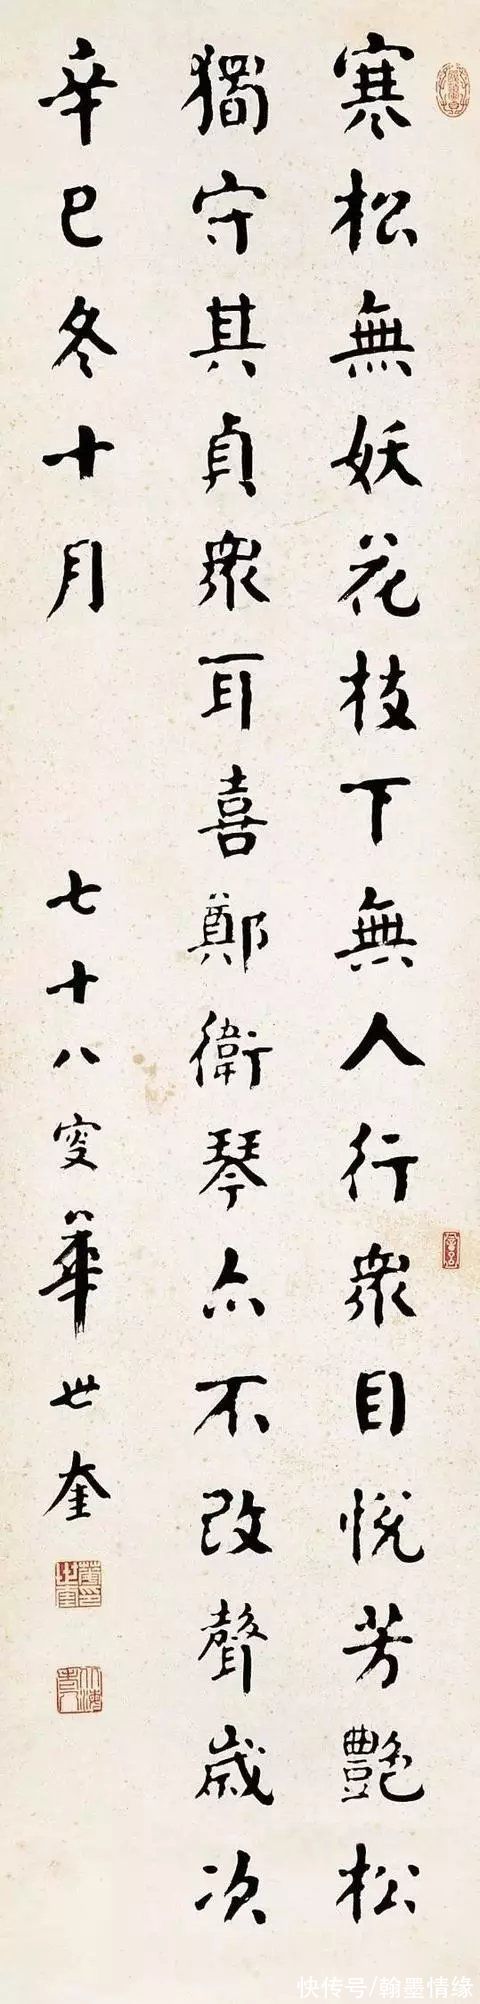 寒松無妖花枝下無人行衆目悅芳艷松
獨守其貞衆耳喜鄭衛琴亦不改聲歲次
辛巳冬十月 七十八叟華世奎
快传号/翰墨情缘